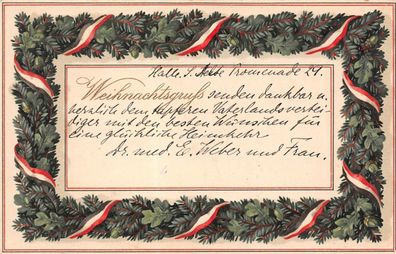 Halle, S. Alte Promenade 29.
Weihnachtsgruß senden dankbar u.
herzlich dem tapferen Vaterlandsvertei-
diger mit den besten Wünschen für
eine glückliche Heimkehr
Dr. med. E. Weber und Frau.